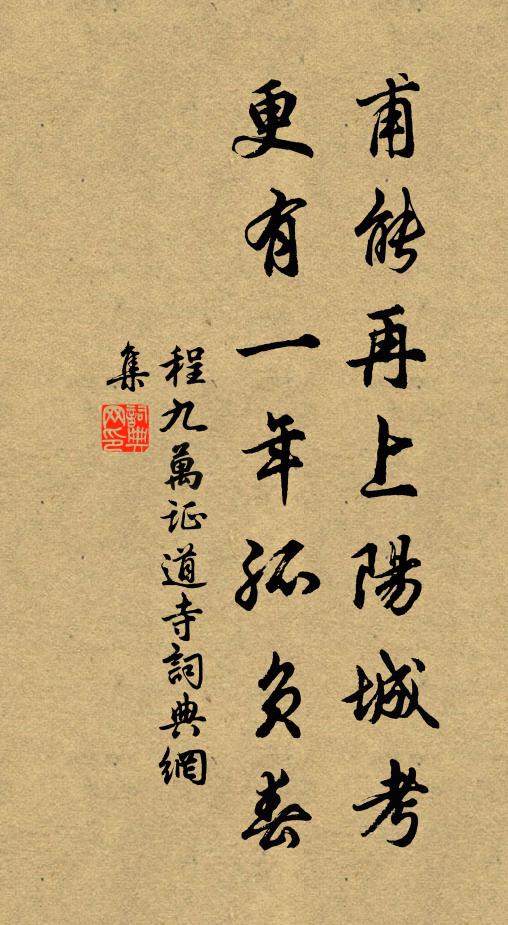 甫能再上陽城考
更有一年孤負春
程九萬证道寺詞典網
集
詞典
网印